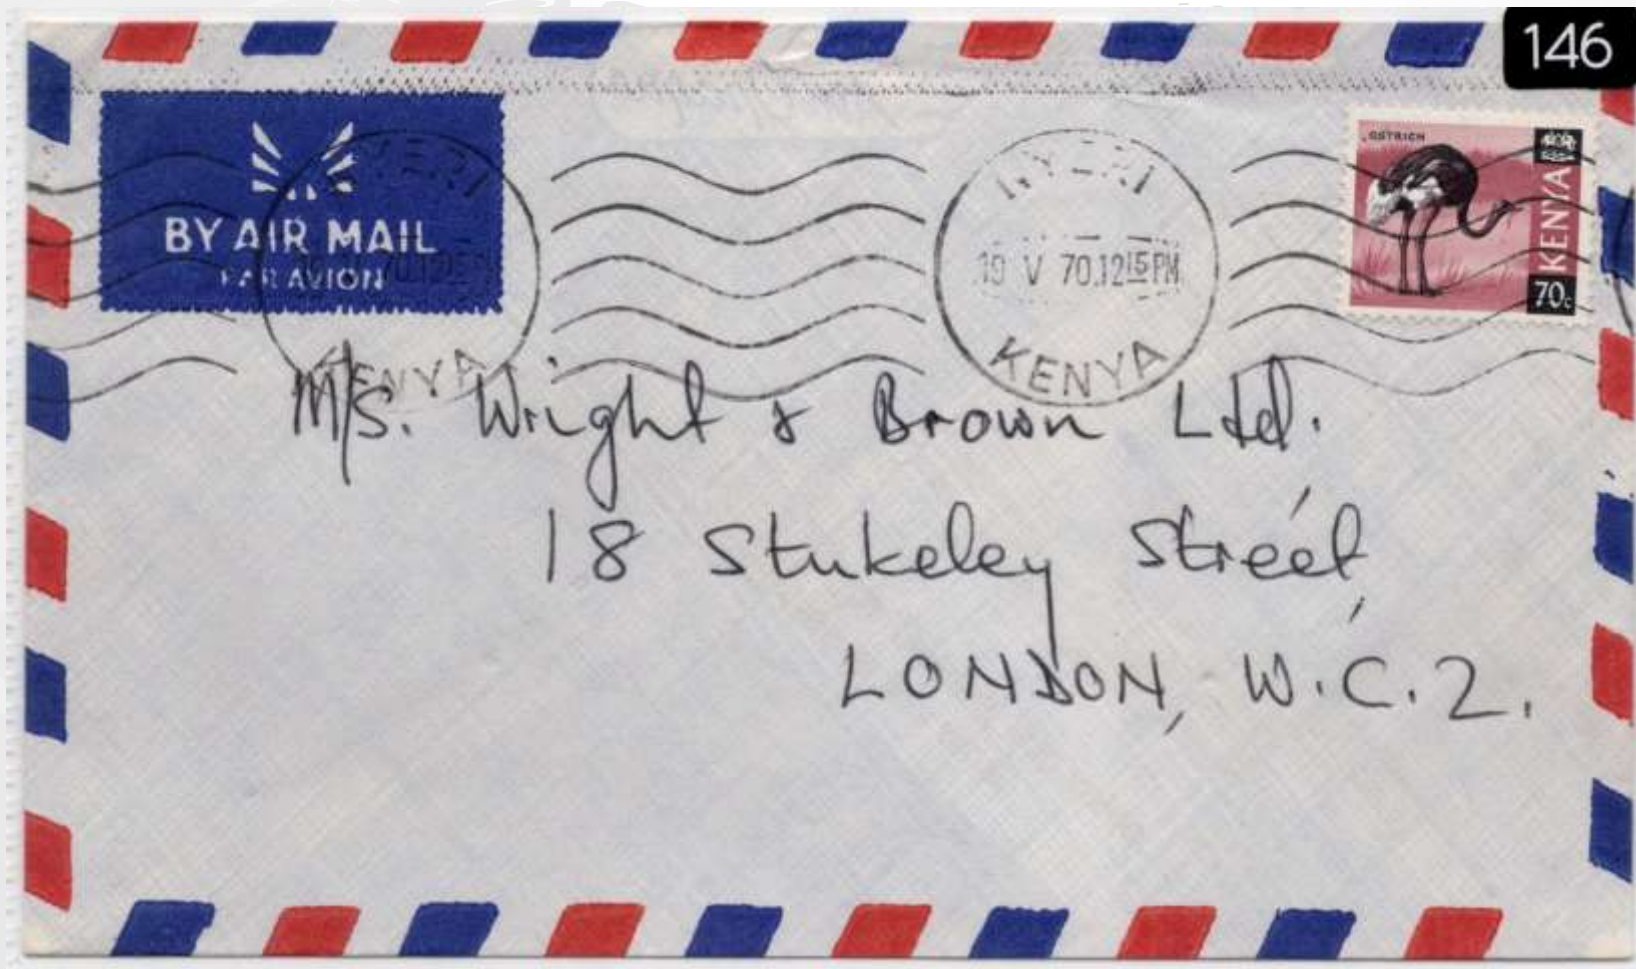 146
BY AIR MAIL
PAR AVION
NYERI
KENYA
NYERI
19 V 70.12 15 PM
KENYA
OSTRICH
KENYA
70c
M/S. Wright & Brown Ltd.
18 Stukeley Street,
LONDON, W.C.2.